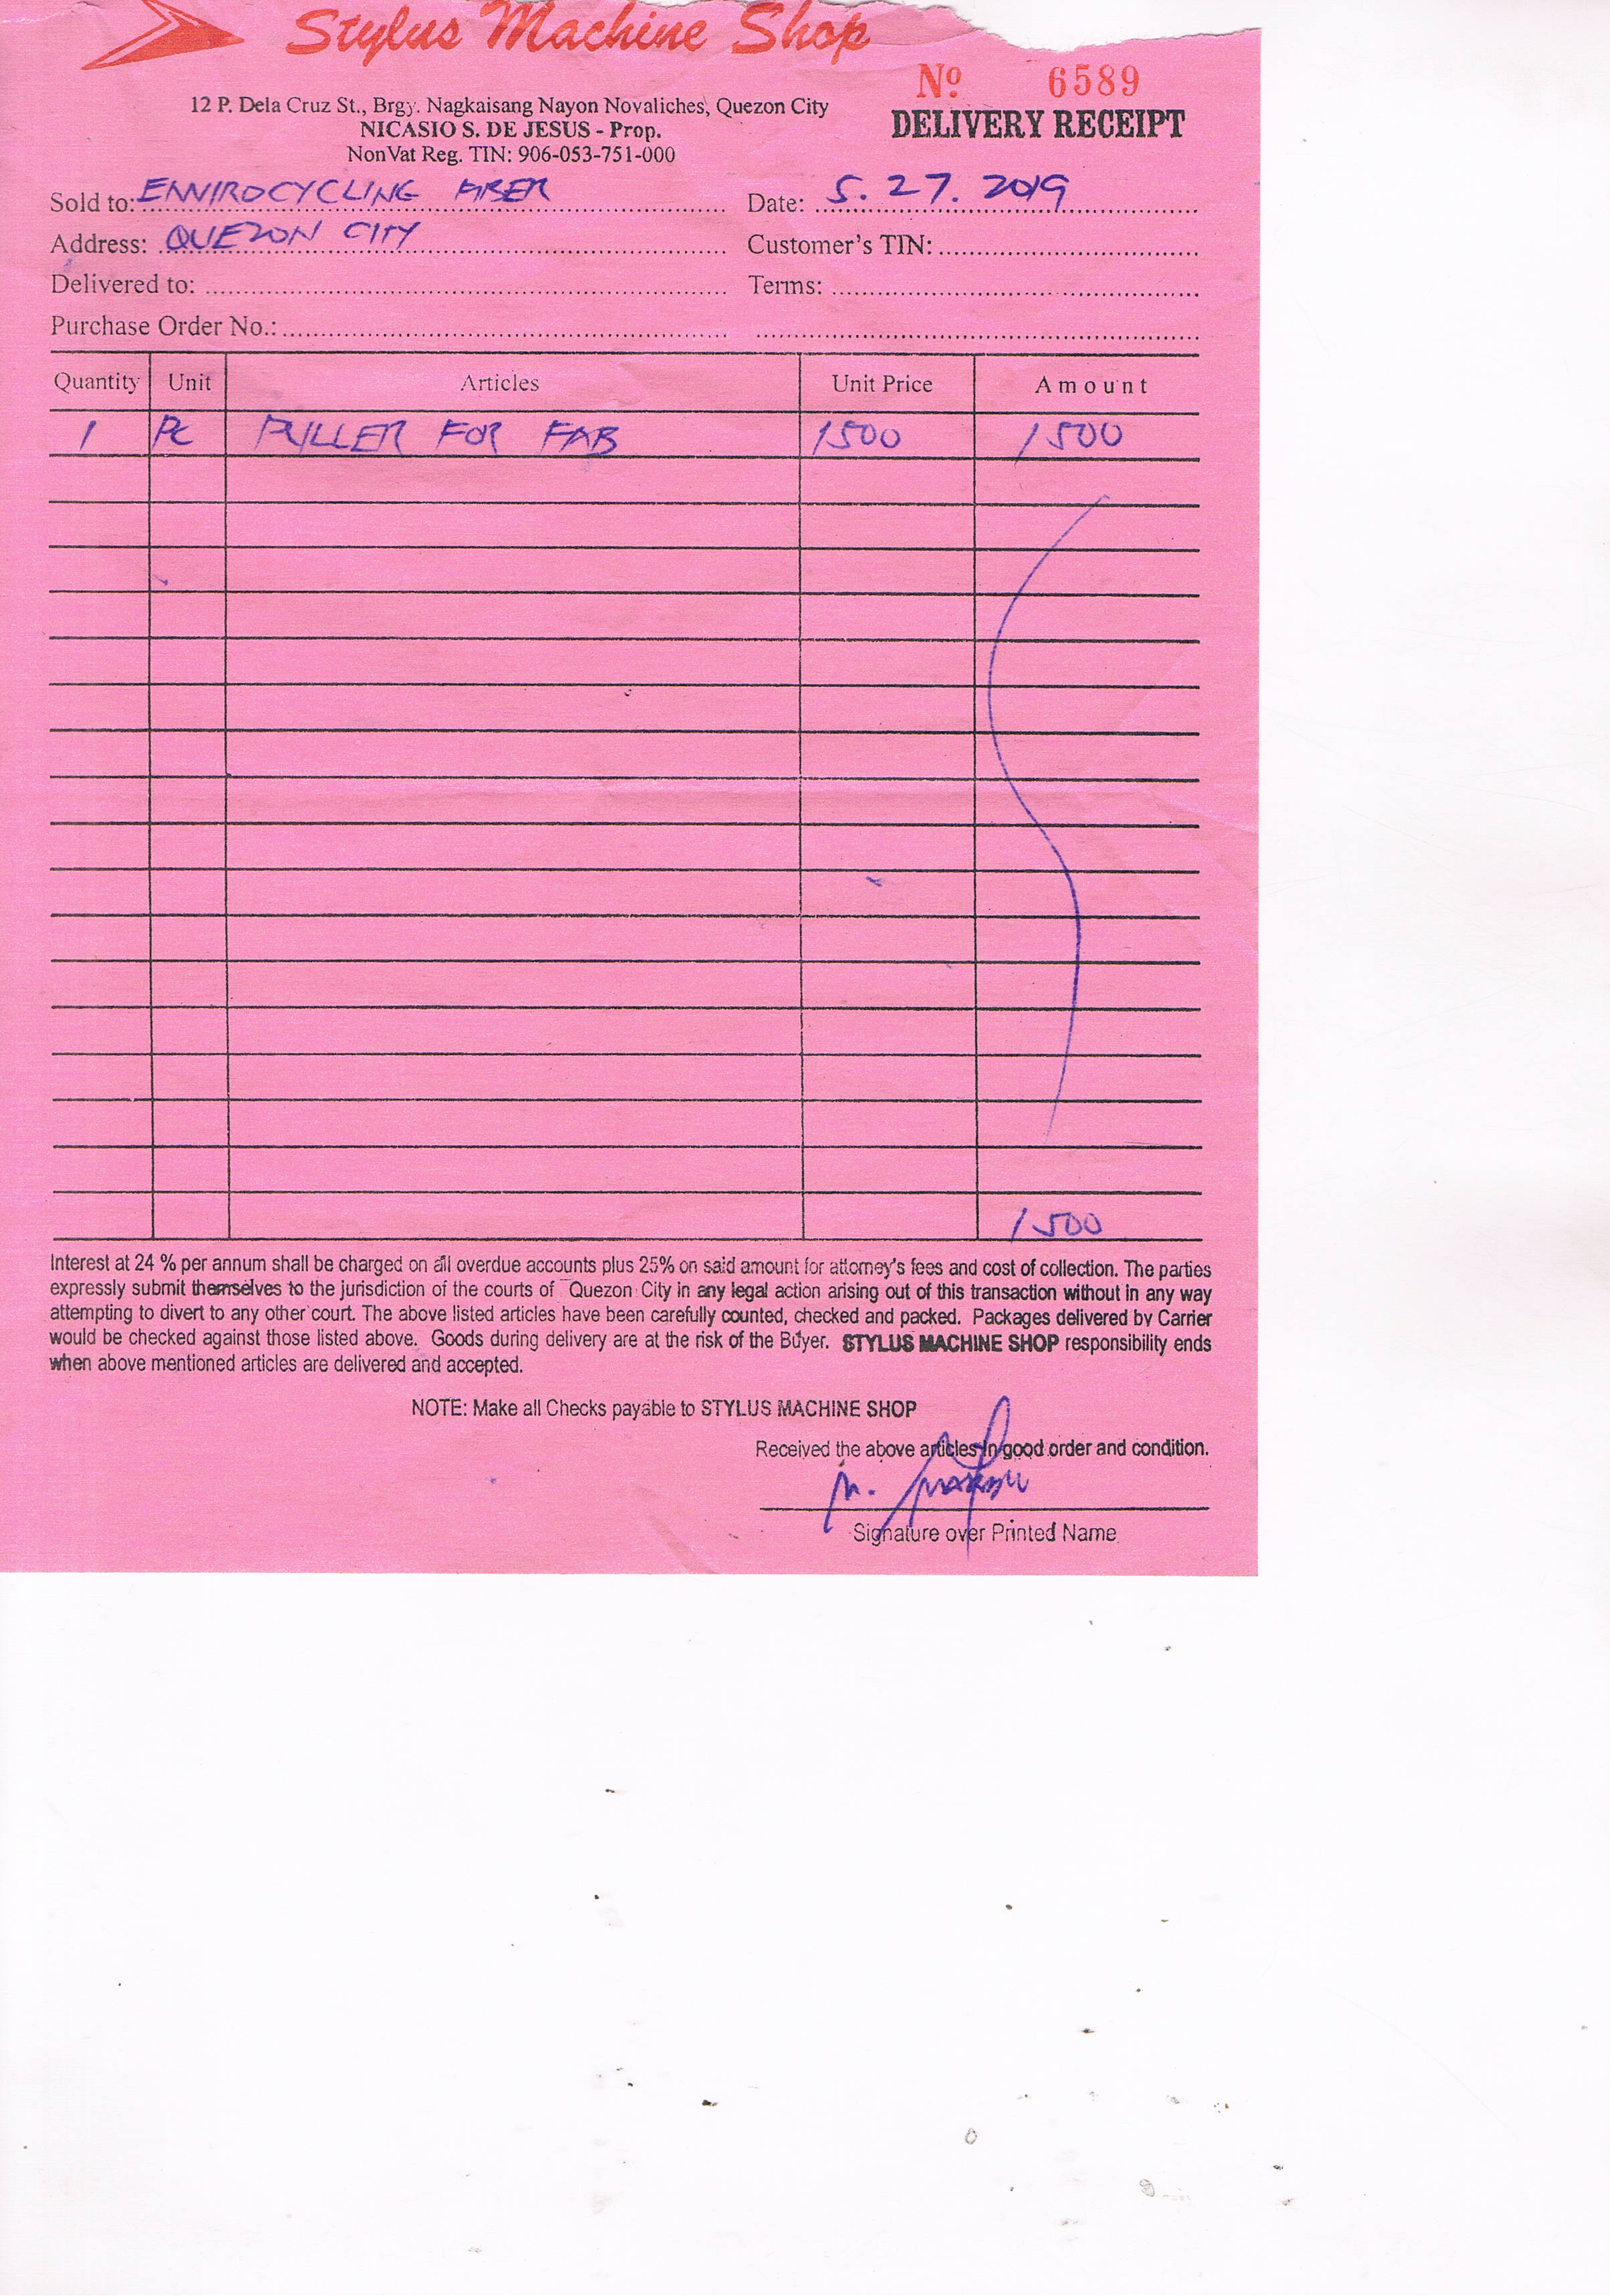 Stylus Machine Shop
Nº 6589
12 P. Dela Cruz St., Brgy. Nagkaisang Nayon Novaliches, Quezon City
DELIVERY RECEIPT
NICASIO S. DE JESUS - Prop.
NonVat Reg. TIN: 906-053-751-000
Sold to: ENVIROCYCLING FIBER Date: 5. 27. 2019
Address: QUEZON CITY Customer's TIN:
Delivered to: Terms:
Purchase Order No.:
Quantity Unit Articles Unit Price Amount
1 PC PULLER FOR FAB 1500 1500
1500
Interest at 24 % per annum shall be charged on all overdue accounts plus 25% on said amount for attorney's fees and cost of collection. The parties
expressly submit themselves to the jurisdiction of the courts of Quezon City in any legal action arising out of this transaction without in any way
attempting to divert to any other court. The above listed articles have been carefully counted, checked and packed. Packages delivered by Carrier
would be checked against those listed above. Goods during delivery are at the risk of the Buyer. STYLUS MACHINE SHOP responsibility ends
when above mentioned articles are delivered and accepted.
NOTE: Make all Checks payable to STYLUS MACHINE SHOP
Received the above articles in good order and condition.
Signature over Printed Name